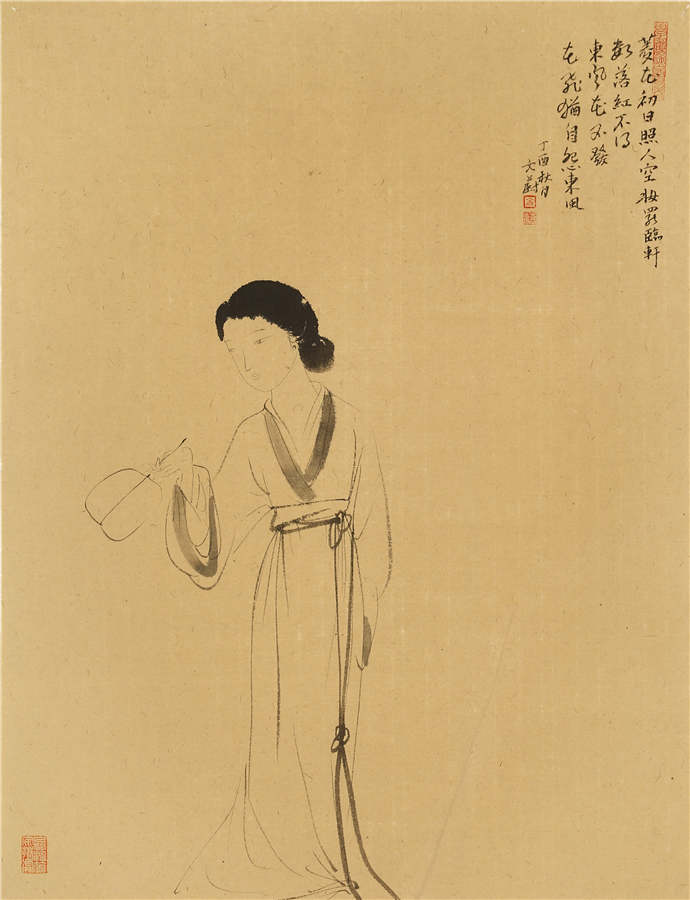 菱花初日照人空妝罷臨軒
數落紅不得
東風花不發
花飛猶自怨東風
丁酉秋月
文蔚